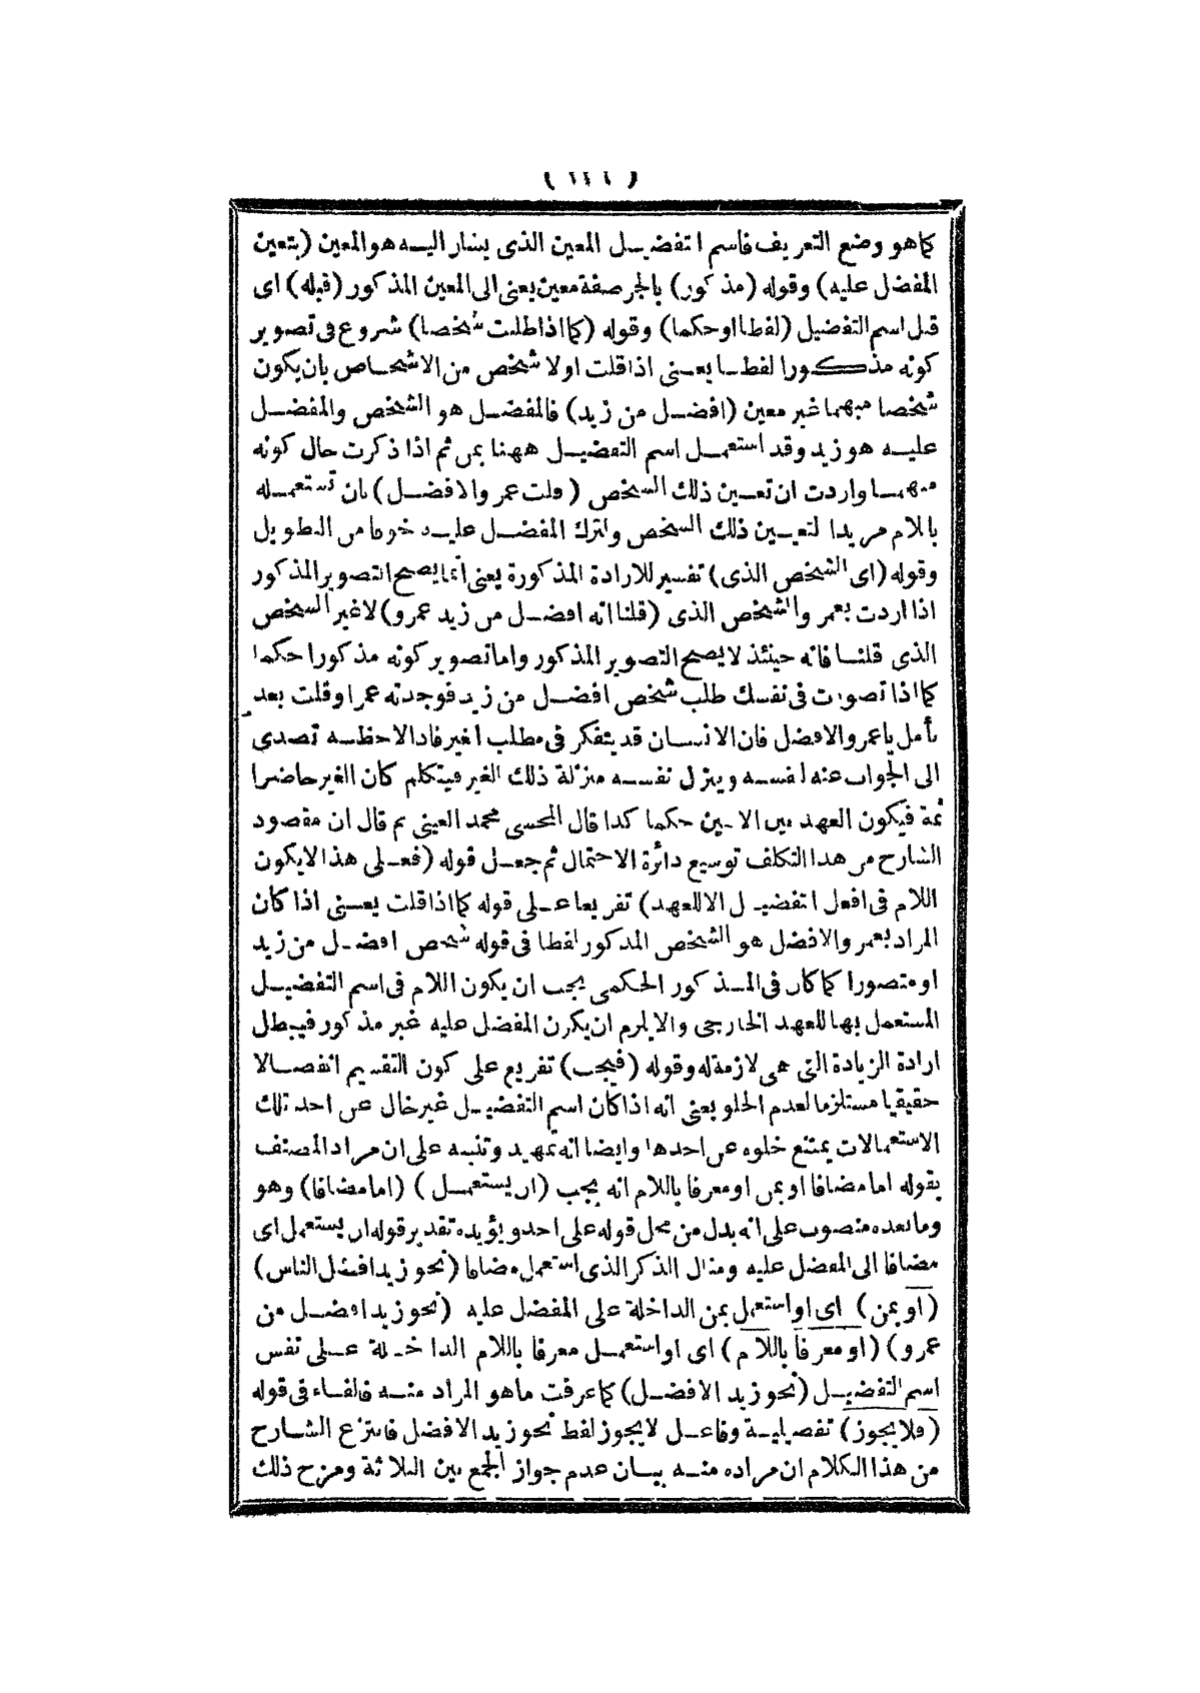 كما هو وضع التعريف فاسم التفضيل المعين الذى يشار اليه هو المعين (بتعين
المفضل عليه) وقوله (مذكور) بالجر صفة معين يعنى الى المعين المذكور (قبله) اى
قبل اسم التفضيل (لفظا او حكما) وقوله (كما اذا طلبت شخصا) شروع فى تصوير
كونه مذكورا لفظا يعنى اذا قلت اولا شخص من الاشخاص بان يكون
شخصا مبهما غير معين (افضل من زيد) فالمفضل هو الشخص والمفضل
عليه هو زيد وقد استعمل اسم التفضيل ههنا بمن ثم اذا ذكرت حال كونه
مبهما واردت ان تعين ذلك الشخص (قلت عمرو الافضل) بان تستعمله
باللام مريدا لتعيين ذلك الشخص وتترك المفضل عليه خوفا من التطويل
وقوله (اى الشخص الذى) تفسير للارادة المذكورة يعنى انما يصح التصوير المذكور
اذا اردت بعمرو الشخص الذى (قلنا انه افضل من زيد عمرو) لا غير الشخص
الذى قلنا فانه حينئذ لا يصح التصوير المذكور واما تصوير كونه مذكورا حكما
كما اذا تصورت فى نفسك طلب شخص افضل من زيد فوجدته عمرا وقلت بعد
تأمل يا عمرو الافضل فان الانسان قد يتفكر فى مطلب اغير فاذا لاحظه تصدى
الى الجواب عنه لنفسه وينزل نفسه منزلة ذلك الغير فيتكلم كان الغير حاضرا
ثمة فيكون العهد بين الاثنين حكما كذا قال المحشى محمد العينى ثم قال ان مقصود
الشارح من هذا التكلف توسيع دائرة الاحتمال ثم جعل قوله (فعلى هذا لا يكون
اللام فى افعل التفضيل الا للعهد) تفريعا على قوله كما اذا قلت يعنى اذا كان
المراد بعمرو الافضل هو الشخص المذكور لفظا فى قوله شخص افضل من زيد
او متصورا كما كان فى المذكور الحكمى يجب ان يكون اللام فى اسم التفضيل
المستعمل بها للعهد الخارجى والا يلزم ان يكون المفضل عليه غير مذكور فيبطل
ارادة الزيادة التى هى لازمة له وقوله (فيجب) تفريع على كون التقسيم انفصالا
حقيقيا مستلزما لعدم الخلو يعنى انه اذا كان اسم التفضيل غير خال عن احد تلك
الاستعمالات يمتنع خلوه عن احدها وايضا انه تمهيد وتنبيه على ان مراد المصنف
بقوله اما مضافا او بمن او معرفا باللام انه يجب (ان يستعمل) (اما مضافا) وهو
وما بعده منصوب على انه بدل من محل قوله على احد ويؤيده تقدير قوله ان يستعمل اى
مضافا الى المفضل عليه ومثال الذكر الذى استعمل مضافا (نحو زيد افضل الناس)
(او بمن) اى او استعمل بمن الداخلة على المفضل عليه (نحو زيد افضل من
عمرو) (او معرفا باللام) اى او استعمل معرفا باللام الداخلة على نفس
اسم التفضيل (نحو زيد الافضل) كما عرفت ما هو المراد منه فالفاء فى قوله
(فلا يجوز) تفصيلية وفاعل لا يجوز لفظ نحو زيد الافضل فانتزع الشارح
من هذا الكلام ان مراده منه بيان عدم جواز الجمع بين الثلاثة ومزج ذلك